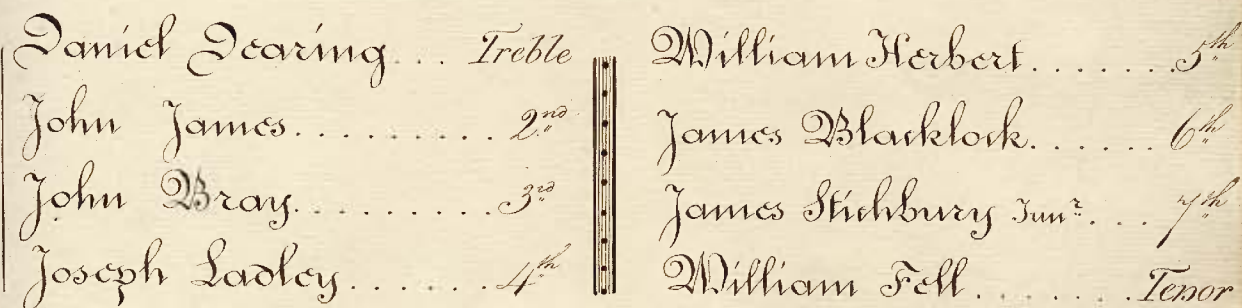 Daniel Dearing... Treble
John James.......... 2nd
John Bray.......... 3rd
Joseph Ladley...... 4th
William Herbert....... 5th
James Blacklock...... 6th
James Stichbury Junr.... 7th
William Fell....... Tenor